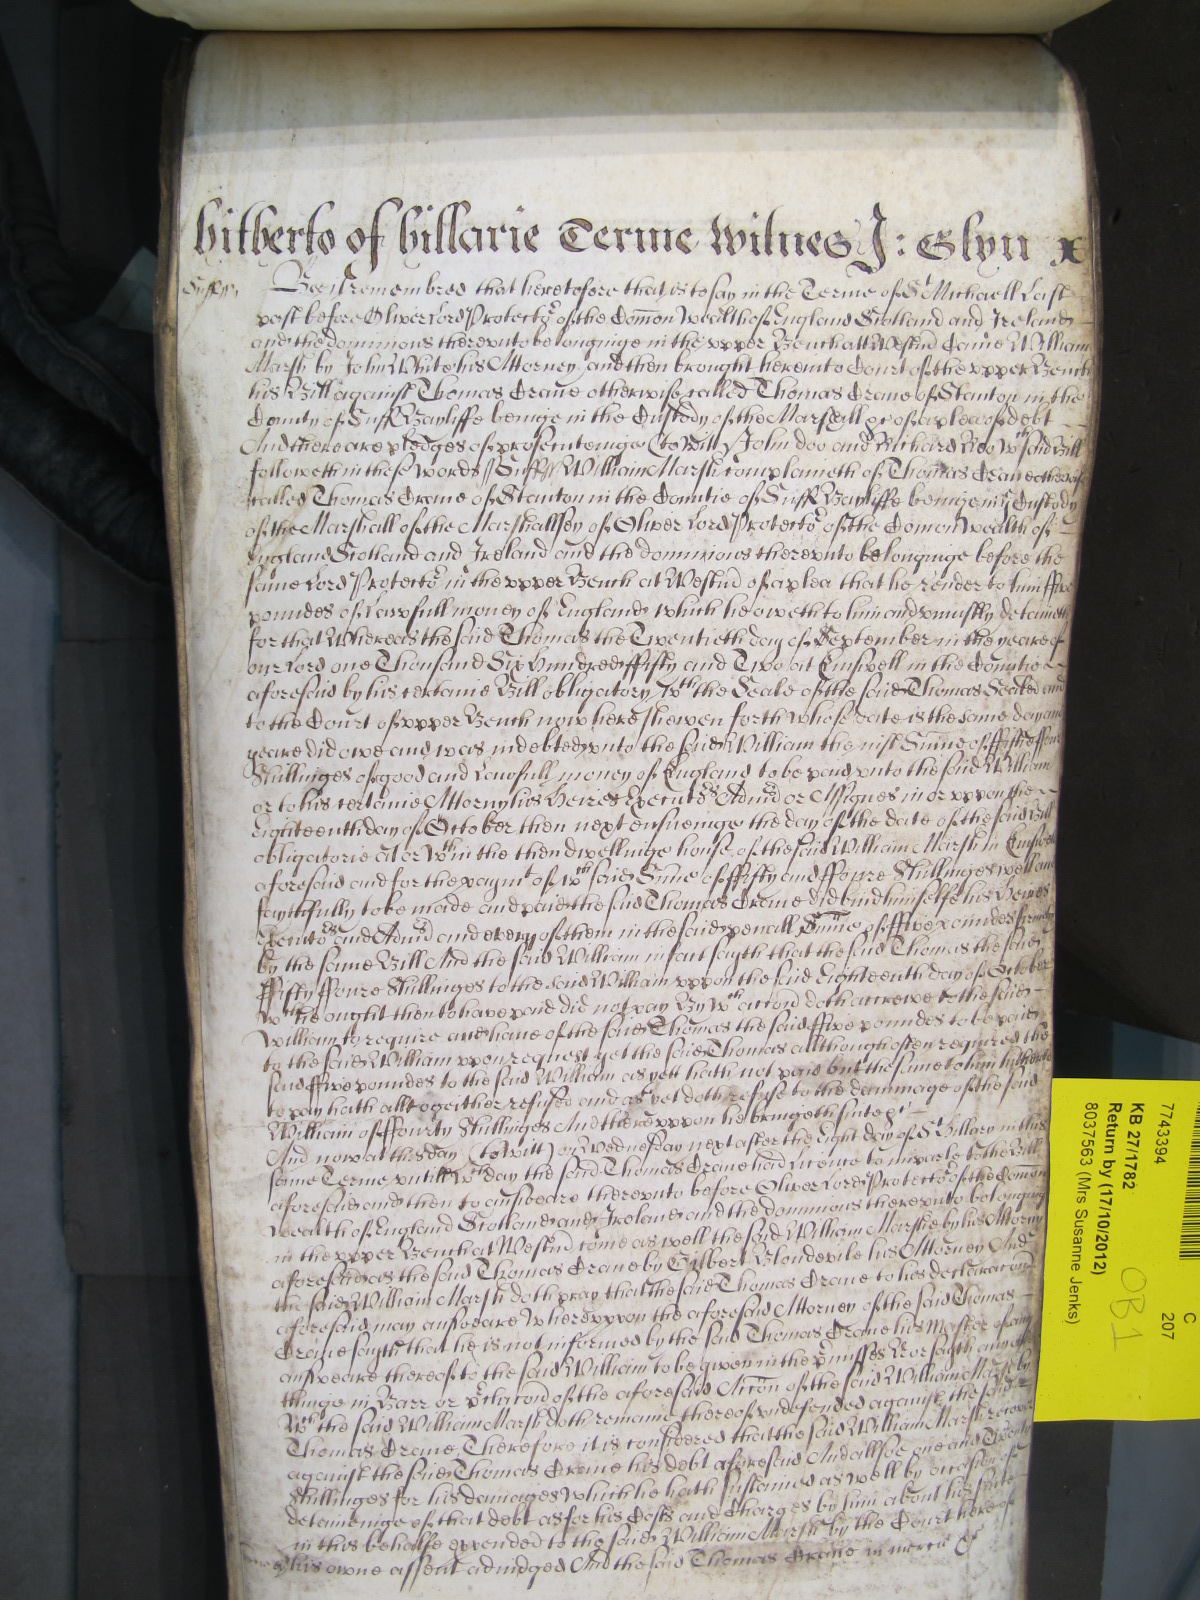 hitherto of hillarie Terme Witnes J: Glyn x
Suff ss Bee it remembred that heretofore that is to say in the Terme of St Michaell Last
past before Oliver Lord Protectr of the Comon Wealth of England Scotland and Ireland
and the dominions thereunto belonginge in the upper Bench att Westmr Came William
Marsh by John White his Attorney and then brought here into Court of the upper Bench
his Bill against Thomas Crane otherwise called Thomas Crane of Stanton in the
County of Suff Bayliffe beinge in the Custody of the Marshall &c of a plea of debt
And there are pledges of prosecutinge (to Witt) John doo and Richard Roo Wch said Bill
followeth in these words // Suff ss William Marsh complaineth of Thomas Crane otherwise
called Thomas Crane of Stanton in the Countie of Suff Bayliffe beinge in ye Custody
of the Marshall of the Marshallsey of Oliver Lord Protectr of the Comon Wealth of
England Scotland and Ireland and the dominions thereunto belonginge before the
same Lord Protectr in the upper Bench at Westmr of a plea that he render to him ffive
poundes of Lawfull money of England which he oweth to him and uniustly detaineth
for that Whereas the said Thomas the Twentieth day of September in the yeare of
our Lord one Thousand Six Hundred ffifty and Two at Emswell in the Countie
aforesaid by his certaine Bill obligatory Wth the Seale of the said Thomas Sealed and
to the Court of upper Bench now here shewen forth whose date is the same day and
yeare did owe and was indebted unto the said William the iust Sume of ffiftie ffoure
Shillinges of good and Lawfull money of England to be paid unto the said William
or to his certaine Attorny his Heires Executrs Admrs or Assignes in or uppon the
Eighteenth day of October then next ensueinge the day of the date of the said Bill
obligatorie at or Wthin the then dwellinge house of the said William Marsh in Emswell
aforesaid and for the paymt of wch said Sume of ffifty and ffoure Shillinges well and
faythfully to be made and paid the said Thomas Crane did bind himselfe his Heires
Executrs and Admrs and every of them in the said penall Sume of ffive poundes
by the same Bill And the said William in fact sayth that the said Thomas the said
ffifty ffoure Shillinges to the said William uppon the said Eighteenth day of October
Wch he ought then to have paid did not pay By Wch accion doth accrewe to the said
William to require and have of the said Thomas the said ffive poundes to be paid
to the said William uppon request yet the said Thomas allthough often required the
said ffive poundes to the said William as yett hath not paid but the same to him hitherto
to pay hath alltogeither refused and as yet doth refuse to the dammage of the said
William of ffourty Shillinges And thereuppon he bringeth suite &c
And now at this day (to Witt) on Wednesday next after the Eight day of St Hillary in this
same Terme untill Wch day the said Thomas Crane had Licence to imparle to the Bill
aforesaid and then to answeare thereunto before Oliver Lord Protectr of the Comon
Wealth of England Scotland and Ireland and the dominions thereunto belonginge
in the upper Bench at Westmr come as well the said William Marshe by his Attorny
aforesaid as the said Thomas Crane by Gilbert Blondevile his Attorney And
the said William Marsh doth pray that the said Thomas Crane to his declaracon
aforesaid may answeare Whereuppon the aforesaid Attorney of the said Thomas
Crane sayth that he is not informed by the said Thomas Crane his Master of any
answeare thereof to the said William to be given in the prmisses Nor sayth any
thinge in Barr or prclusion of the aforesaid Accon of the said William Marsh by
Wch the said William Marsh doth remaine thereof undefended against the said
Thomas Crane Therefore it is considered that the said William Marsh recover
against the said Thomas Crane his debt aforesaid And allsoe one and Twenty
Shillinges for his damages which he hath sustained as well by occasion of
deteininge of that debt as for his Costs and Charges by him about his suite
in this behalfe expended to the said William Marsh by the Court here of
his owne assent adiudged And the said Thomas Crane in mercie &c
7743394
C
207
KB 27/1782
Return by (17/10/2012)
8037563 (Mrs Susanne Jenks)
OB1